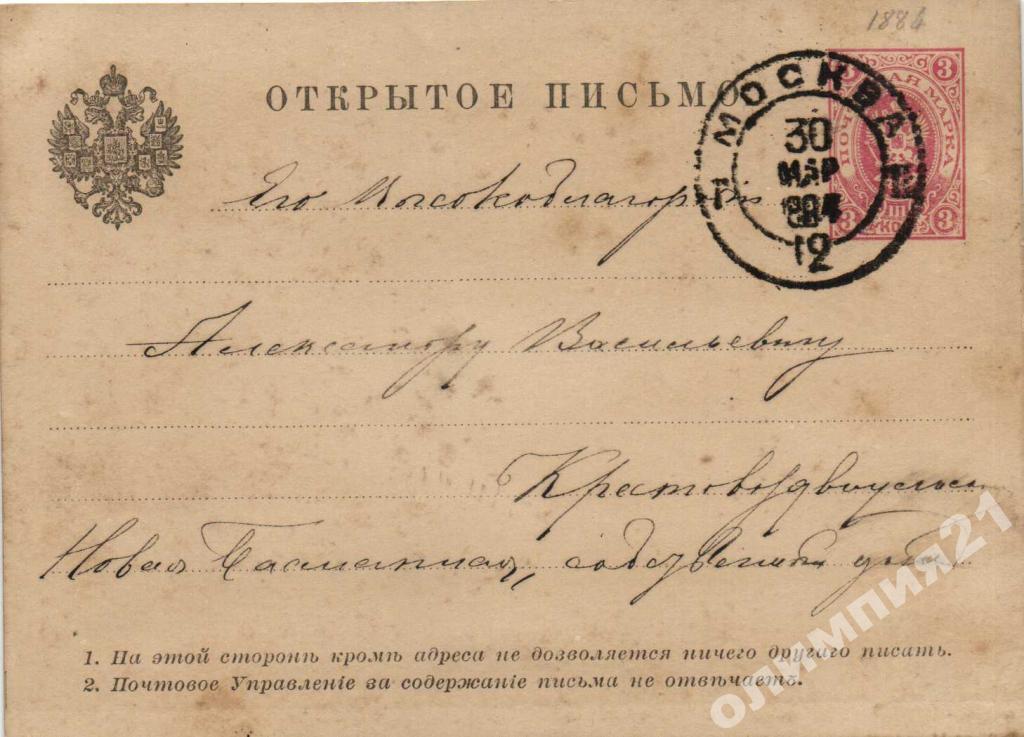 1884
ОТКРЫТОЕ ПИСЬМО
МОСКВА
30
МАР
1884
12
ПОЧТОВАЯ МАРКА
3
3
3
КОП
Его Высокоблагород
Александру Васильевичу
Крестовоздвиженск
Новая Басманная, собственный домъ
1. На этой сторонѣ кромѣ адреса не дозволяется ничего другаго писать.
2. Почтовое Управленіе за содержаніе письма не отвѣчаетъ.
олимпия21